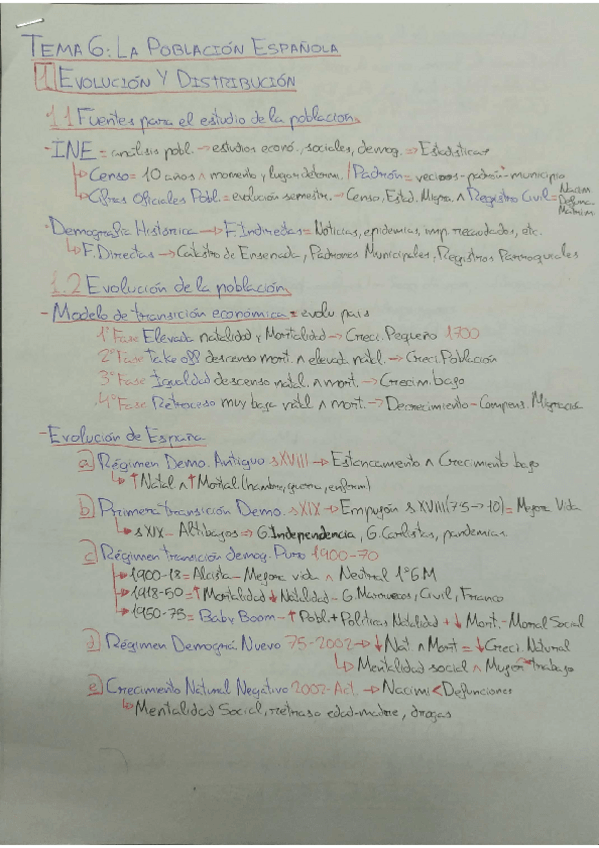 TEMA 6: LA POBLACIÓN ESPAÑOLA
1 EVOLUCIÓN Y DISTRIBUCIÓN
1.1 Fuentes para el estudio de la población
- INE = análisis pobl. → estudios econó., sociales, demog. → Estadísticas
↳ Censo = 10 años ∧ momento y lugar determi. / Padrón = vecinos - padrón - municipio
↳ Cifras Oficiales Pobl. = evolución semestr. → Censo, Estad. Migra. ∧ Registro Civil = Nacim
Defunc.
Matrim
· Demografía Histórica → F. Indirectas = Noticias, epidemias, imp. recaudados, etc.
↳ F. Directas → Catastro de Ensenada, Padrones Municipales, Registros Parroquiales
1.2 Evolución de la población
- Modelo de transición económica = evolu país
1ª Fase Elevada natalidad y Mortalidad → Creci. Pequeño 1700
2ª Fase Take off descenso mort. ∧ elevad. natl. → Creci. Población
3ª Fase Igualdad descenso natal. ∧ mort. → Crecim. bajo
4ª Fase Retroceso muy baja natal ∧ mort. → Decrecimiento - Compens. Migracs
- Evolución de España
a) Régimen Demo. Antiguo s XVIII → Estancamento ∧ Crecimiento bajo
↳ ↑ Natal ∧ ↑ Mortal (hambre, guerra, enferm)
b) Primera transición Demo. s XIX → Empujón s XVIII (7'5 → 10) = Mejora Vida
↳ s XIX - Altibajos ⇒ G. Independencia, G. Carlistas, pandemias
c) Régimen transición demog. Puro 1900-70
↳ 1900-18 = Alcista - Mejora vida ∧ Neutral 1ª GM
↳ 1918-50 = ↑ Mortalidad ↓ Natalidad - G. Marruecos, Civil, Franco
↳ 1950-75 = Baby Boom - ↑ Pobl. + Políticas Natalidad + ↓ Mort. - Moral Social
d) Régimen Demográ Nuevo 75-2002 → ↓ Nat. ∧ Mort = ↓ Creci. Natural
↳ Mentalidad social ∧ Mujer trabajo
e) Crecimiento Natural Negativo 2002-Act. → Nacimi < Defunciones
↳ Mentalidad Social, retraso edad-madre, drogas